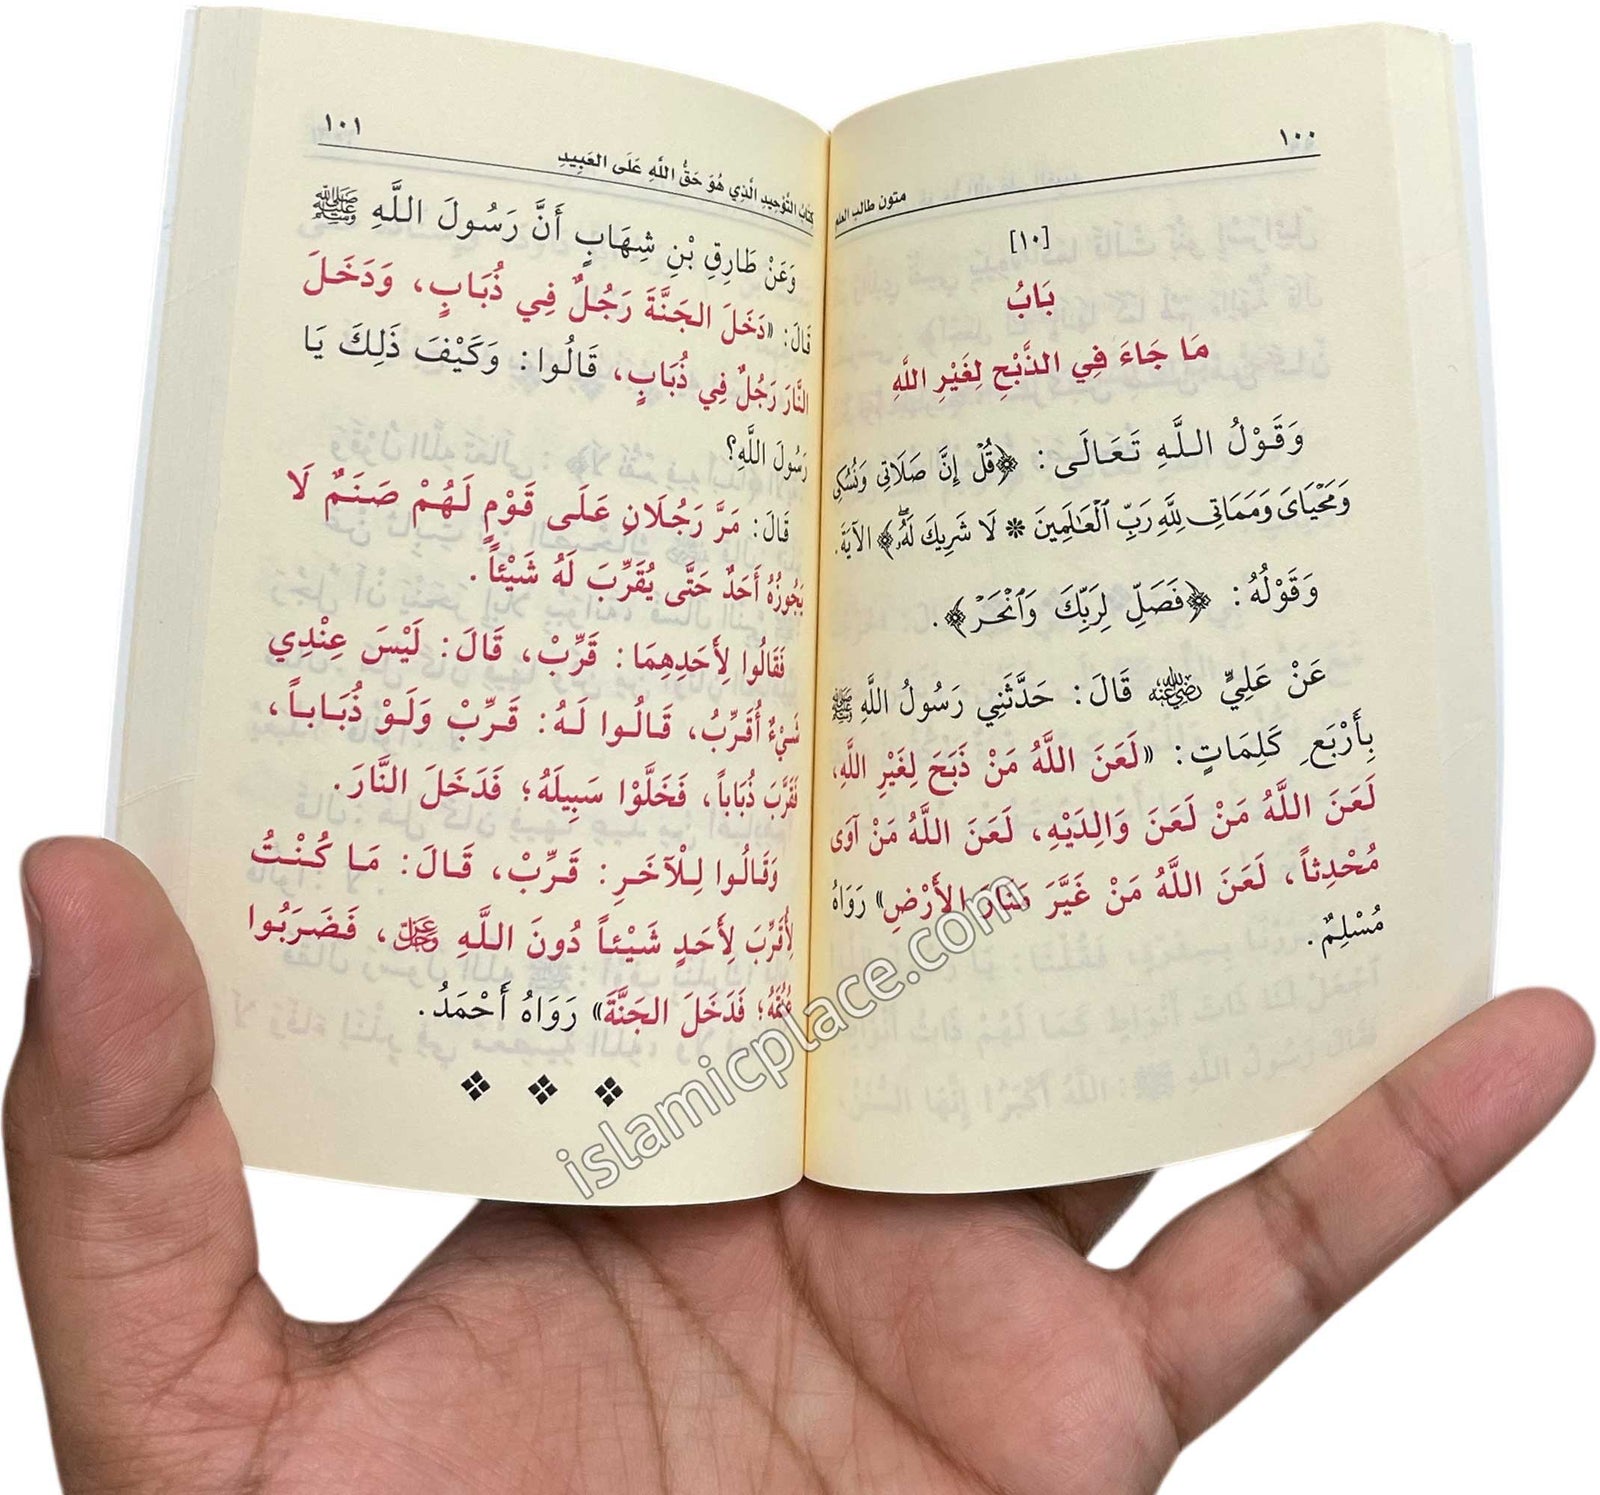 ١٠٠
متون طالب العلم
[١٠]
بَابُ
مَا جَاءَ فِي الذَّبْحِ لِغَيْرِ اللَّهِ
وَقَوْلُ اللَّهِ تَعَالَى: ﴿قُلْ إِنَّ صَلَاتِى وَنُسُكِى
وَمَحْيَاىَ وَمَمَاتِى لِلَّهِ رَبِّ ٱلْعَـٰلَمِينَ * لَا شَرِيكَ لَهُۥ﴾ الآيَةَ.
وَقَوْلُهُ: ﴿فَصَلِّ لِرَبِّكَ وَٱنْحَرْ﴾.
عَنْ عَلِيٍّ رضي الله عنه قَالَ: حَدَّثَنِي رَسُولُ اللَّهِ ﷺ
بِأَرْبَعِ كَلِمَاتٍ: «لَعَنَ اللَّهُ مَنْ ذَبَحَ لِغَيْرِ اللَّهِ،
لَعَنَ اللَّهُ مَنْ لَعَنَ وَالِدَيْهِ، لَعَنَ اللَّهُ مَنْ آوَى
مُحْدِثاً، لَعَنَ اللَّهُ مَنْ غَيَّرَ مَنَارَ الأَرْضِ» رَوَاهُ
مُسْلِمٌ.
١٠١
كتابُ التَّوْحِيدِ الَّذِي هُوَ حَقُّ اللَّهِ عَلَى العَبِيدِ
وَعَنْ طَارِقِ بْنِ شِهَابٍ أَنَّ رَسُولَ اللَّهِ ﷺ
قَالَ: «دَخَلَ الجَنَّةَ رَجُلٌ فِي ذُبَابٍ، وَدَخَلَ
النَّارَ رَجُلٌ فِي ذُبَابٍ، قَالُوا: وَكَيْفَ ذَلِكَ يَا
رَسُولَ اللَّهِ؟
قَالَ: مَرَّ رَجُلَانِ عَلَى قَوْمٍ لَهُمْ صَنَمٌ لَا
يَجُوزُهُ أَحَدٌ حَتَّى يُقَرِّبَ لَهُ شَيْئاً.
فَقَالُوا لِأَحَدِهِمَا: قَرِّبْ، قَالَ: لَيْسَ عِنْدِي
شَيْءٌ أُقَرِّبُ، قَالُوا لَهُ: قَرِّبْ وَلَوْ ذُبَاباً،
فَقَرَّبَ ذُبَاباً، فَخَلَّوْا سَبِيلَهُ؛ فَدَخَلَ النَّارَ.
وَقَالُوا لِلْآخَرِ: قَرِّبْ، قَالَ: مَا كُنْتُ
لِأُقَرِّبَ لِأَحَدٍ شَيْئاً دُونَ اللَّهِ عز وجل، فَضَرَبُوا
عُنُقَهُ؛ فَدَخَلَ الجَنَّةَ» رَوَاهُ أَحْمَدُ.
islamicplace.com